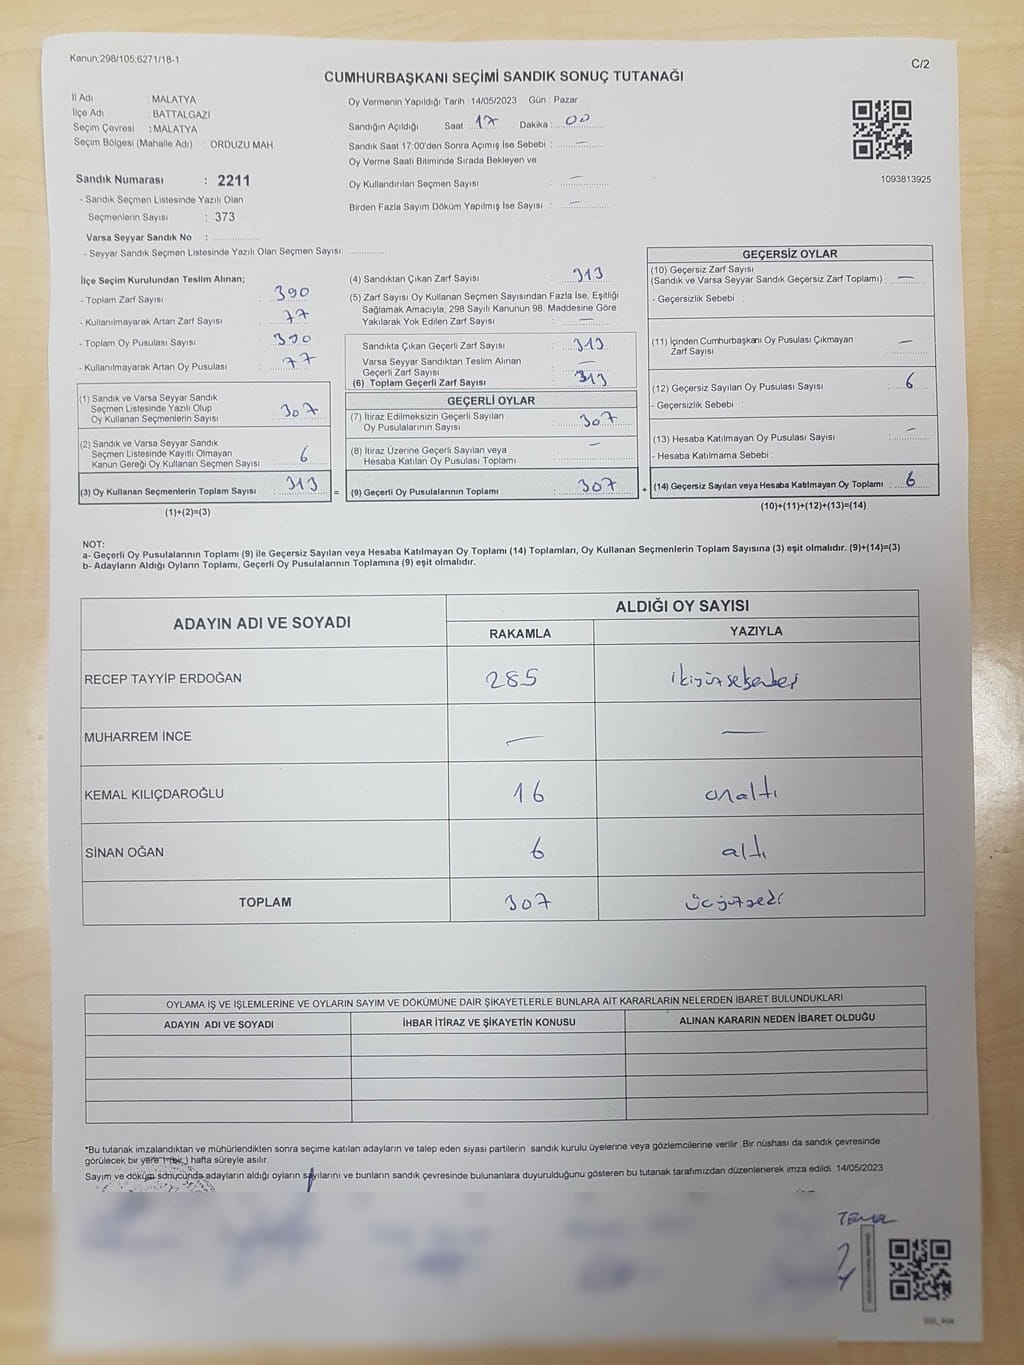 Kanun;298/105;6271/18-1
C/2
CUMHURBAŞKANI SEÇİMİ SANDIK SONUÇ TUTANAĞI
İl Adı : MALATYA
İlçe Adı : BATTALGAZİ
Seçim Çevresi : MALATYA
Seçim Bölgesi (Mahalle Adı) : ORDUZU MAH.
Sandık Numarası : 2211
- Sandık Seçmen Listesinde Yazılı Olan
Seçmenlerin Sayısı : 373
Varsa Seyyar Sandık No :
- Seyyar Sandık Seçmen Listesinde Yazılı Olan Seçmen Sayısı:
Oy Vermenin Yapıldığı Tarih : 14/05/2023 Gün : Pazar
Sandığın Açıldığı Saat : 17 Dakika : 00
Sandık Saat 17:00'den Sonra Açımış İse Sebebi : —
Oy Verme Saati Bitiminde Sırada Bekleyen ve
Oy Kullandırılan Seçmen Sayısı : —
Birden Fazla Sayım Döküm Yapılmış İse Sayısı : —
1093813925
İlçe Seçim Kurulundan Teslim Alınan;
- Toplam Zarf Sayısı : 390
- Kullanılmayarak Artan Zarf Sayısı : 77
- Toplam Oy Pusulası Sayısı : 390
- Kullanılmayarak Artan Oy Pusulası : 77
(1) Sandık ve Varsa Seyyar Sandık
Seçmen Listesinde Yazılı Olup
Oy Kullanan Seçmenlerin Sayısı : 307
(2) Sandık ve Varsa Seyyar Sandık
Seçmen Listesinde Kayıtlı Olmayan
Kanun Gereği Oy Kullanan Seçmen Sayısı : 6
(3) Oy Kullanan Seçmenlerin Toplam Sayısı : 313
(1)+(2)=(3)
(4) Sandıktan Çıkan Zarf Sayısı : 313
(5) Zarf Sayısı Oy Kullanan Seçmen Sayısından Fazla İse, Eşitliği
Sağlamak Amacıyla; 298 Sayılı Kanunun 98. Maddesine Göre
Yakılarak Yok Edilen Zarf Sayısı : —
Sandıkta Çıkan Geçerli Zarf Sayısı : 313
Varsa Seyyar Sandıktan Teslim Alınan
Geçerli Zarf Sayısı : —
(6) Toplam Geçerli Zarf Sayısı : 313
=
GEÇERLİ OYLAR
(7) İtiraz Edilmeksizin Geçerli Sayılan
Oy Pusulalarının Sayısı : 307
(8) İtiraz Üzerine Geçerli Sayılan veya
Hesaba Katılan Oy Pusulası Toplamı : —
(9) Geçerli Oy Pusulalarının Toplamı : 307
+
GEÇERSİZ OYLAR
(10) Geçersiz Zarf Sayısı
(Sandık ve Varsa Seyyar Sandık Geçersiz Zarf Toplamı) : —
- Geçersizlik Sebebi :
(11) İçinden Cumhurbaşkanı Oy Pusulası Çıkmayan
Zarf Sayısı : —
(12) Geçersiz Sayılan Oy Pusulası Sayısı : 6
- Geçersizlik Sebebi :
(13) Hesaba Katılmayan Oy Pusulası Sayısı : —
- Hesaba Katılmama Sebebi :
(14) Geçersiz Sayılan veya Hesaba Katılmayan Oy Toplamı : 6
(10)+(11)+(12)+(13)=(14)
NOT:
a- Geçerli Oy Pusulalarının Toplamı (9) ile Geçersiz Sayılan veya Hesaba Katılmayan Oy Toplamı (14) Toplamları, Oy Kullanan Seçmenlerin Toplam Sayısına (3) eşit olmalıdır. (9)+(14)=(3)
b- Adayların Aldığı Oyların Toplamı, Geçerli Oy Pusulalarının Toplamına (9) eşit olmalıdır.
ADAYIN ADI VE SOYADI
ALDIĞI OY SAYISI
RAKAMLA YAZIYLA
RECEP TAYYİP ERDOĞAN 285 ikiyüzseksenbeş
MUHARREM İNCE — —
KEMAL KILIÇDAROĞLU 16 onaltı
SİNAN OĞAN 6 altı
TOPLAM 307 üçyüzyedi
OYLAMA İŞ VE İŞLEMLERİNE VE OYLARIN SAYIM VE DÖKÜMÜNE DAİR ŞİKAYETLERLE BUNLARA AİT KARARLARIN NELERDEN İBARET BULUNDUKLARI
ADAYIN ADI VE SOYADI İHBAR İTİRAZ VE ŞİKAYETİN KONUSU ALINAN KARARIN NEDEN İBARET OLDUĞU
*Bu tutanak imzalandıktan ve mühürlendikten sonra seçime katılan adayların ve talep eden siyasi partilerin sandık kurulu üyelerine veya gözlemcilerine verilir. Bir nüshası da sandık çevresinde
görülecek bir yere 1 (bir) hafta süreyle asılır.
Sayım ve döküm sonucunda adayların aldığı oyların sayılarını ve bunların sandık çevresinde bulunanlara duyurulduğunu gösteren bu tutanak tarafımızdan düzenlenerek imza edildi. 14/05/2023